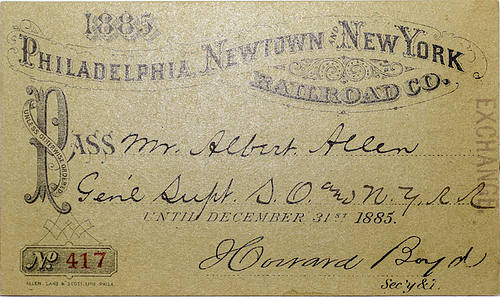 1885
PHILADELPHIA, NEWTOWN AND NEW YORK
RAILROAD CO.
PASS Mr. Albert Allen
UNLESS OTHERWISE ORDERED
Gen'l Supt. S. O. and N. Y. R R
UNTIL DECEMBER 31ST 1885.
No 417
Howard Boyd
Sec'y &
ALLEN, LANE & SCOTT, LITH. PHILA.
EXCHANGE.